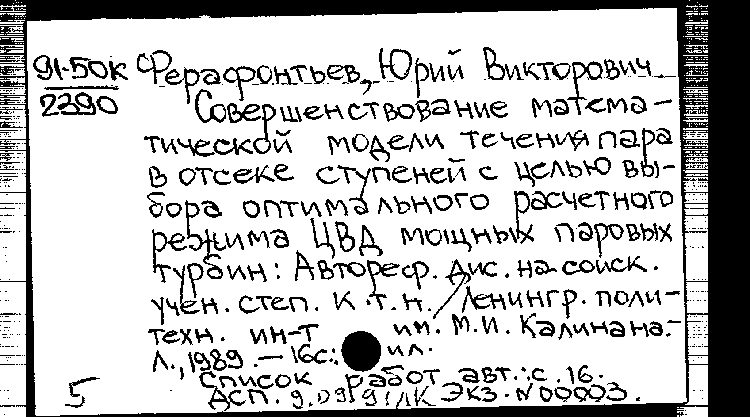 91-50К
2290
Ферафонтьев, Юрий Викторович
Совершенствование матема-
тической модели течения пара
в отсеке ступеней с целью вы-
бора оптимального расчетного
режима ЦВД мощных паровых
турбин: Автореф. дис. на соиск.
учен. степ. к.т.н. / Ленингр. поли-
техн. ин-т им. М.И. Калинана.-
Л., 1989. — 16с.: ил.
Список работ авт.: с. 16.
ДСП. Экз. N 00003.
5